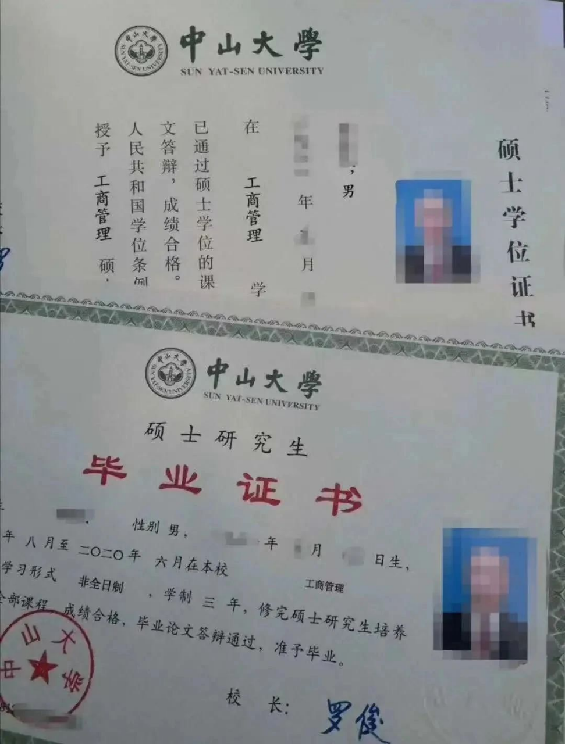 中山大学
SUN YAT-SEN UNIVERSITY
硕士学位证书
，男
年 月
在 工商管理 学
已通过硕士学位的课
文答辩，成绩合格。
人民共和国学位条例
授予 工商管理 硕
中山大学
SUN YAT-SEN UNIVERSITY
硕士研究生
毕业证书
性别 男， 年 月 日生，
年 八月至 二〇二〇年 六月在本校 工商管理
学习形式 非全日制 ，学制 三 年，修完硕士研究生培养
全部课程，成绩合格，毕业论文答辩通过，准予毕业。
中山大学
校 长：罗俊